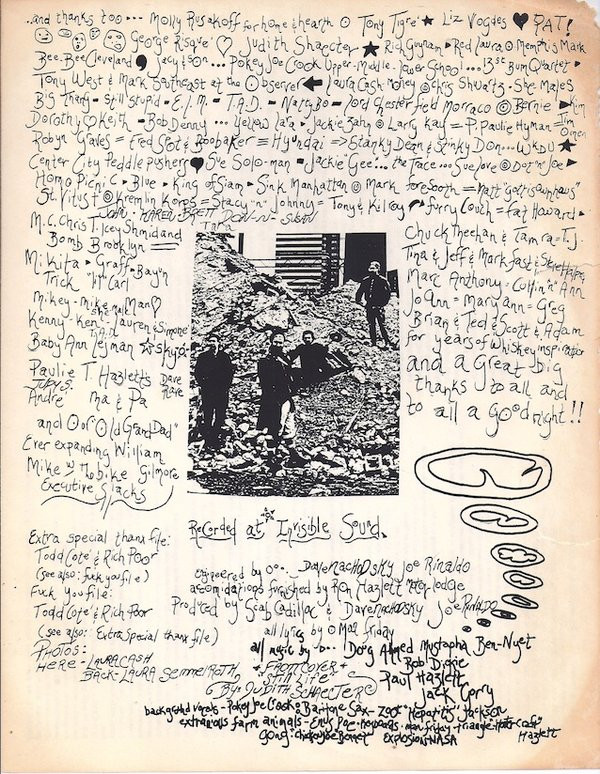 ..and thanks too... Molly Rusakoff for home & hearth Tony Tigre' ★ Liz Vogdes ♥ PAT!
George Risque' ♡ Judith Shaecter ★ Rich Guzman Red Laura Memphis Mark
Bee-Bee Cleveland Jacy & son... Pokey Joe Cook Upper-Middle-Lower School... 13st Bum Quartet
Tony West & Mark Southeast at the Observer ← Laura Cash-Money Chris Shwartz - She Males
Big Thang - Still Stupid - E.I.M. - T.A.D. - Natty Bo - lord Chesterfield Morraco Bernie Kim
Dorothy Keith - Bob Denny ... Yellow Lara - Jackie Zahn Larry Kay = P. Paulie Hyman = Jim Omen
Robyn Graves = Fred Stot & Boobaker = Hyundai => Stanky Dean & Stinky Don... WKDU ★
Center City Peddle pushers ♥ Sue Solo-man = Jackie Gee... the Trace... Sue love Dot 'n' Joe
Homo Picnic - Blue - King of Siam - Sink Manhattan Mark Foresooth = Matt
St. Vitus Kremlin Korps = Stacy "n" Johnny = Tony & Kilroy furry Couch = Fat Howard
John Karen Brett Don-N-Susan
Tara
M.C. Chris T. Icey Shmid and
Bomb Brooklyn
Mikita - Graff - Bay'n
Trick "lil" Carl
Mikey-Mike Man
She male
Kenny - Ken Lauren & Simone
T.A.D.
Baby Ann Leiman ☆ Skyla
Paulie T. Hazletts Dave
Judy S.
Andre' Ma & Pa
and O or "Old GrandDad"
Ever expanding William
Mike w/ the bike Gilmore
Executive Slacks
Chuck Theehan & Tamra = T.J.
Tina & Jeff & Mark fast &
Marc Anthony - Collin "n" Ann
Jo Ann = Mary ann = Greg
Brian & Ted & Scott & Adam
for years of Whiskey inspiration
and a Great big
thanks to all and
to all a goodnight!!
Recorded at Invisible Sound.
Extra special thanx file:
Todd Cote' & Rich Poor
(see also: fuck you file)
Fuck you file:
Todd Cote' & Rich Poor
(see also: Extra Special thanx file)
Photos:
Here - Laura Cash
Back - Laura Semmelroth
Engineered by Dave NachoDsky Joe Rinaldo
acomidations furnished by Ron Hazlett Motor lodge
Produced by Scab Cadillac & Dave NachoDsky Joe Rinaldo
all lyrics by Man friday
all music by Dorg Ahmed Mustapha Ben-Nyet
Bob Dickie
Paul Hazlett
Jack Corry
+ Front Cover +
"Still Life"
By: Judith Schaecter
background vocals - Pokey Joe Cook Baritone Sax - Zoot "Hepatitis" Jackson
extranious farm animals - Emik Poe - Keyboards - Man friday - triangle - Hazlett
gong - chickey Joe Bonner Explosions NASA